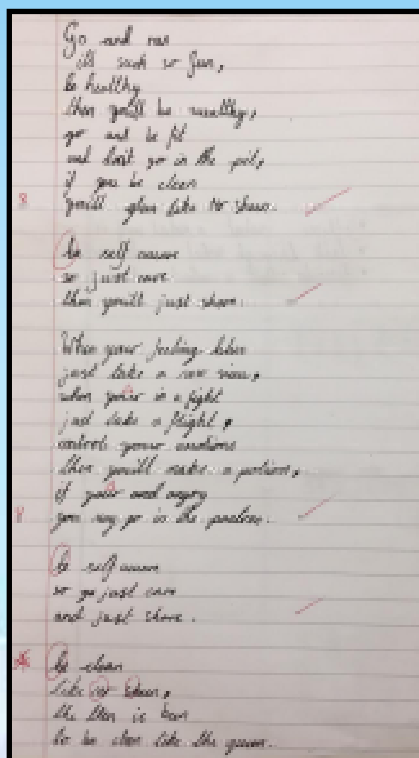 Go and run
it's such so fun,
be healthy
then you'll be wealthy,
go and be fit
and don't go in the pit,
if you be clean
you'll glow like
8
be self aware
so just care
then you'll just share.
When your feeling blue
just take a new view,
when your in a fight
just take a flight,
control your emotions
then you'll make a potion,
if your and angry
you may go in the
8
be self aware
so go just care
and just share.
be clean
like
the then is
to be clean like the queen.